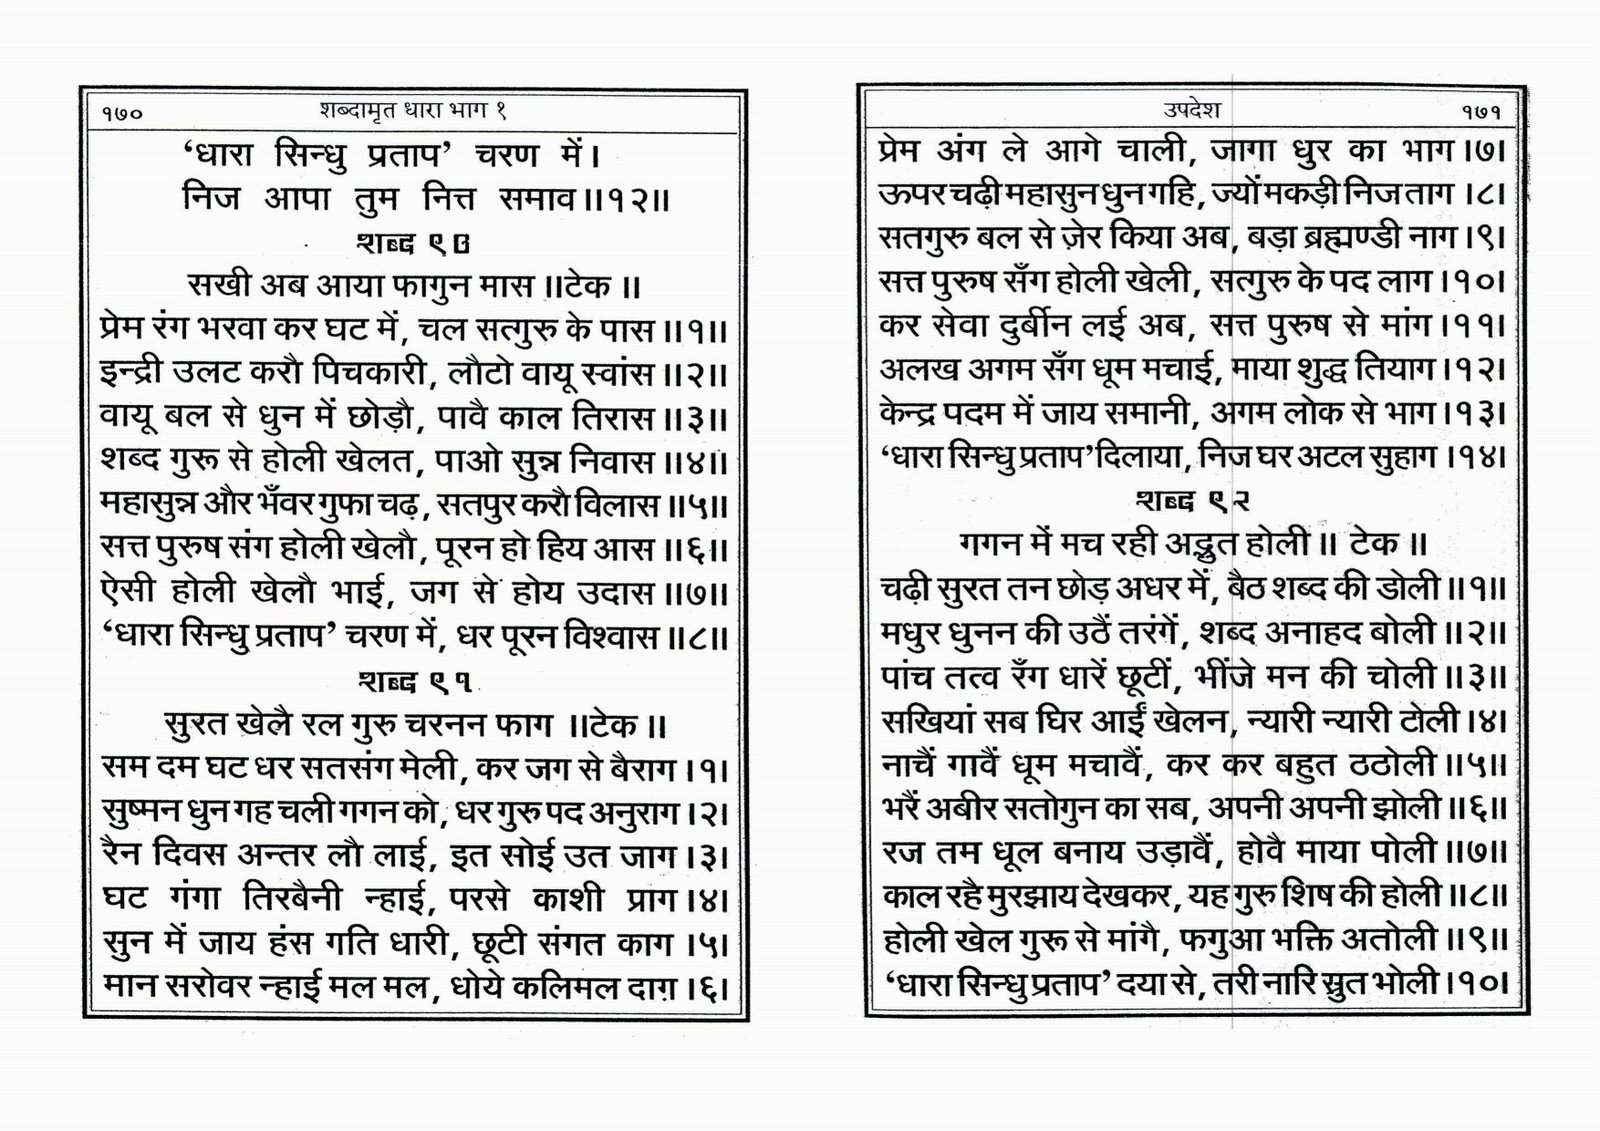 १७० शब्दामृत धारा भाग १
‘धारा सिन्धु प्रताप’ चरण में।
निज आपा तुम नित्त समाव॥१२॥
शब्द ९०
सखी अब आया फागुन मास ॥टेक॥
प्रेम रंग भरवा कर घट में, चल सत्गुरु के पास॥१॥
इन्द्री उलट करौ पिचकारी, लौटो वायू स्वांस॥२॥
वायू बल से धुन में छोड़ौ, पावै काल तिरास॥३॥
शब्द गुरू से होली खेलत, पाओ सुन्न निवास॥४॥
महासुन्न और भँवर गुफा चढ़, सतपुर करौ विलास॥५॥
सत्त पुरुष संग होली खेलौ, पूरन हो हिय आस॥६॥
ऐसी होली खेलौ भाई, जग से होय उदास॥७॥
‘धारा सिन्धु प्रताप’ चरण में, धर पूरन विश्वास॥८॥
शब्द ९१
सुरत खेलै रल गुरु चरनन फाग ॥टेक॥
सम दम घट धर सतसंग मेली, कर जग से बैराग।१।
सुष्मन धुन गह चली गगन को, धर गुरु पद अनुराग।२।
रैन दिवस अन्तर लौ लाई, इत सोई उत जाग।३।
घट गंगा तिरबैनी न्हाई, परसे काशी प्राग।४।
सुन में जाय हंस गति धारी, छूटी संगत काग।५।
मान सरोवर न्हाई मल मल, धोये कलिमल दाग़।६।
उपदेश १७१
प्रेम अंग ले आगे चाली, जागा धुर का भाग।७।
ऊपर चढ़ी महासुन धुन गहि, ज्यों मकड़ी निज ताग।८।
सतगुरु बल से ज़ेर किया अब, बड़ा ब्रह्मण्डी नाग।९।
सत्त पुरुष सँग होली खेली, सत्गुरु के पद लाग।१०।
कर सेवा दुर्बीन लई अब, सत्त पुरुष से मांग।११।
अलख अगम सँग धूम मचाई, माया शुद्ध तियाग।१२।
केन्द्र पदम में जाय समानी, अगम लोक से भाग।१३।
‘धारा सिन्धु प्रताप’ दिलाया, निज घर अटल सुहाग।१४।
शब्द ९२
गगन में मच रही अद्भुत होली॥ टेक॥
चढ़ी सुरत तन छोड़ अधर में, बैठ शब्द की डोली॥१॥
मधुर धुनन की उठैं तरंगें, शब्द अनाहद बोली॥२॥
पांच तत्व रँग धारें छूटीं, भींजे मन की चोली॥३॥
सखियां सब घिर आईं खेलन, न्यारी न्यारी टोली।४।
नाचैं गावैं धूम मचावैं, कर कर बहुत ठठोली॥५॥
भरैं अबीर सतोगुन का सब, अपनी अपनी झोली॥६॥
रज तम धूल बनाय उड़ावैं, होवै माया पोली॥७॥
काल रहै मुरझाय देखकर, यह गुरु शिष की होली॥८॥
होली खेल गुरू से मांगै, फगुआ भक्ति अतोली॥९॥
‘धारा सिन्धु प्रताप’ दया से, तरी नारि स्रुत भोली।१०।